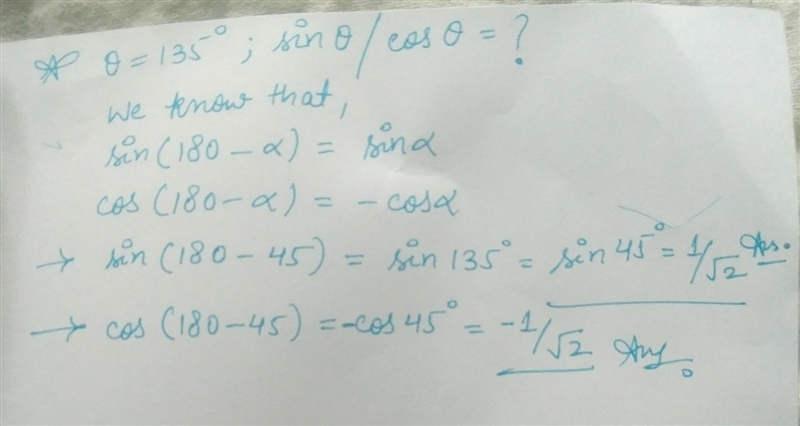 * θ = 135° ; sin θ / cos θ = ?
We know that,
sin(180 - α) = sinα
cos(180 - α) = - cosα
→ sin(180 - 45) = sin 135° = sin 45° = 1/√2 Ans.
→ cos (180 - 45) = -cos 45° = -1/√2 Ans.